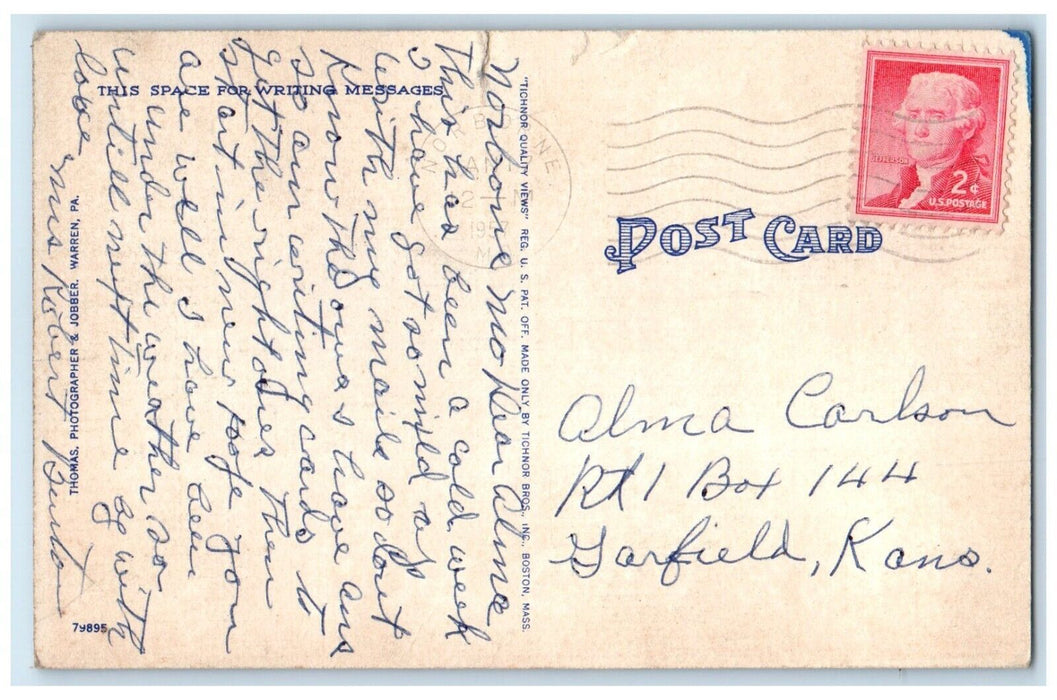 THIS SPACE FOR WRITING MESSAGES
Norborne Mo Dear Alma
this has been a cold week
I have got so mixed up
with my mails so dont
know the ows I have ans
so am writing cards to
get the right adies then
start in new hope you
are well I have been
under the weather so
untill next time by with
love
Mrs Robert
THOMAS, PHOTOGRAPHER & JOBBER, WARREN, PA.
79895
"TICHNOR QUALITY VIEWS" REG. U. S. PAT. OFF. MADE ONLY BY TICHNOR BROS., INC., BOSTON, MASS.
NORBORNE
1957
POST CARD
JEFFERSON
2¢
U.S. POSTAGE
Alma Carlson
Rt 1 Box 144
Garfield, Kans.